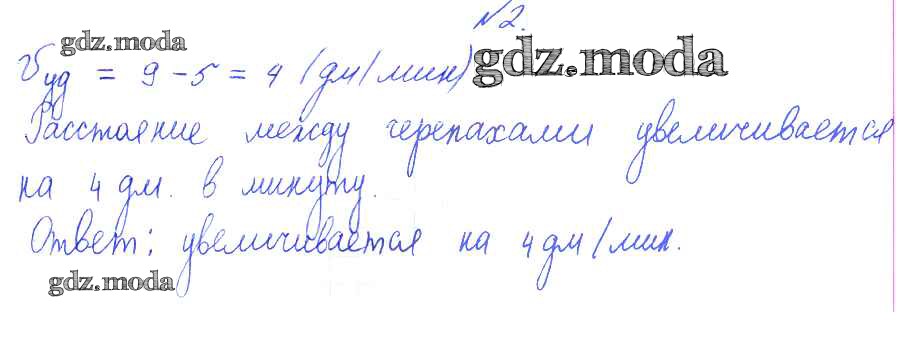 №2.
gdz.moda
Vуд = 9 - 5 = 4 (дм/мин)
gdz.moda
Расстояние между черепахами увеличивается
на 4 дм. в минуту.
Ответ: увеличивается на 4 дм/мин.
gdz.moda